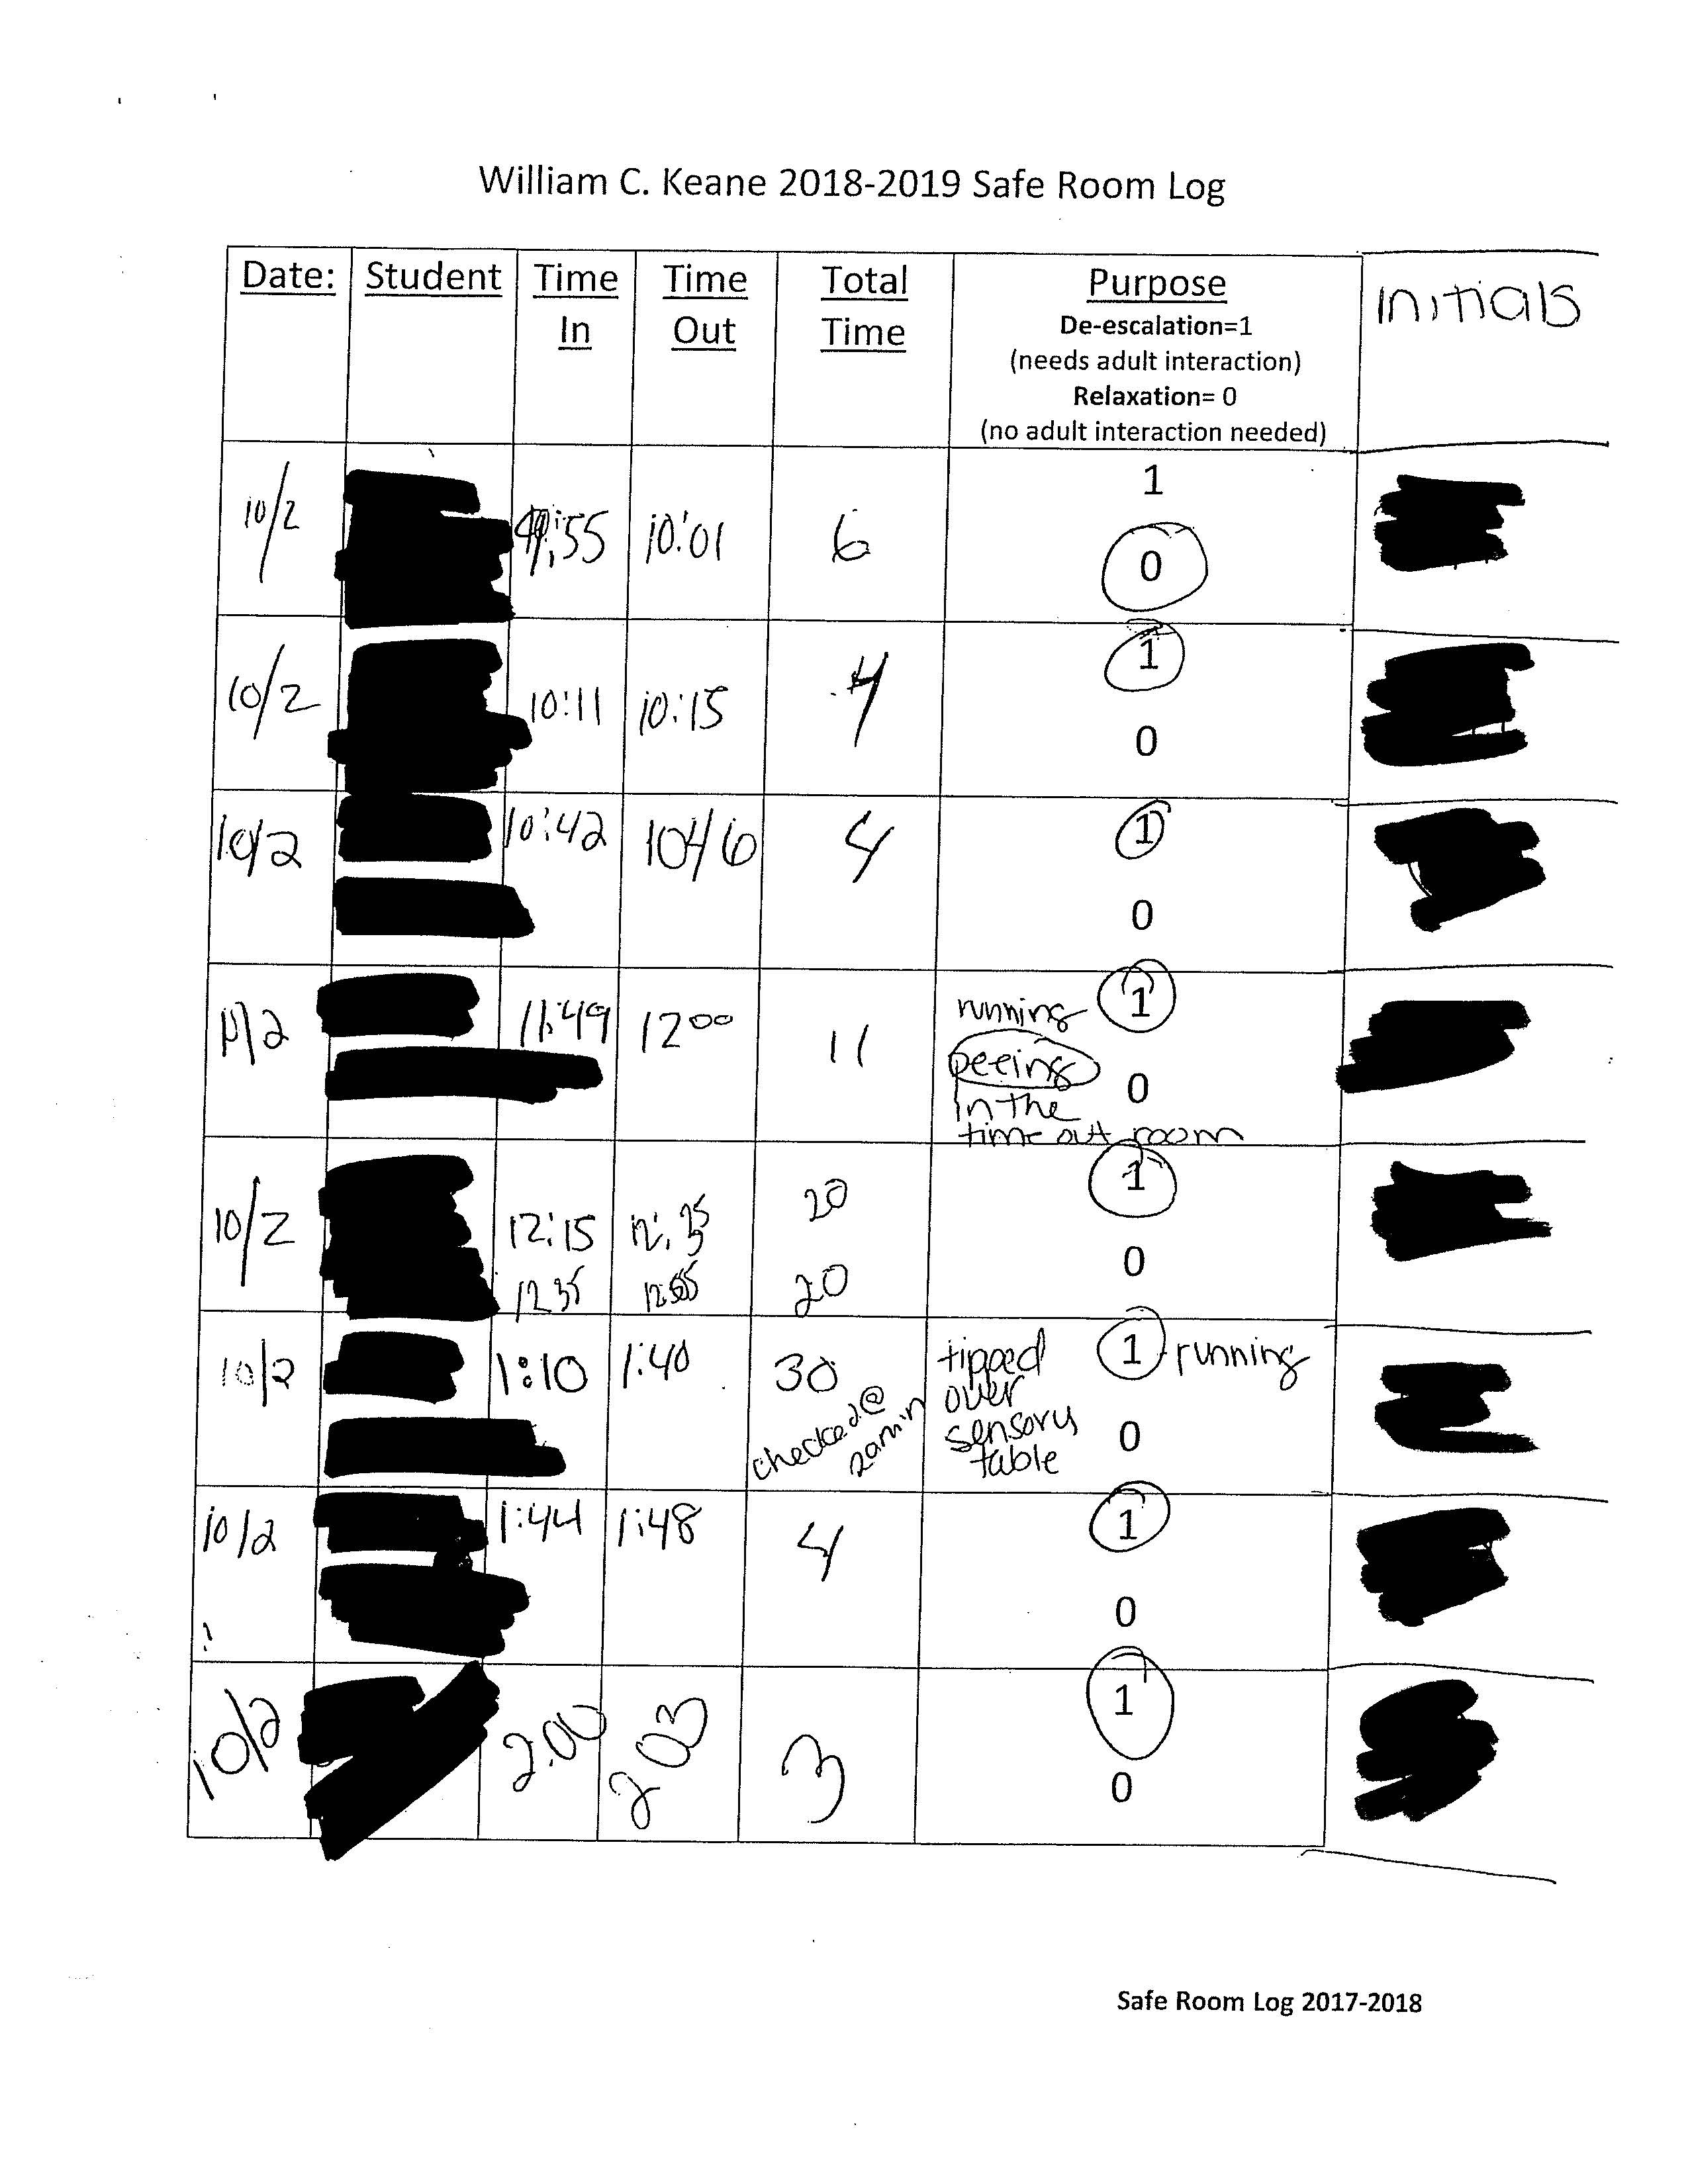 William C. Keane 2018-2019 Safe Room Log
Date: Student Time In Time Out Total Time Purpose Initials
De-escalation=1
(needs adult interaction)
Relaxation= 0
(no adult interaction needed)
10/2 :55 10:01 6 1
0
10/2 10:11 10:15 4 1
0
10/2 10:42 1046 4 1
0
/2 11:49 12 00 11 running 1
peeing 0
in the
time out room
10/2 12:15 12:35 20 1
0
12 35 12:55 20
10/2 1:10 1:40 30 tipped 1 - running
checked @ over
20 min sensory 0
table
10/2 1:44 1:48 4 1
0
10/2 2:00 203 3 1
0
Safe Room Log 2017-2018